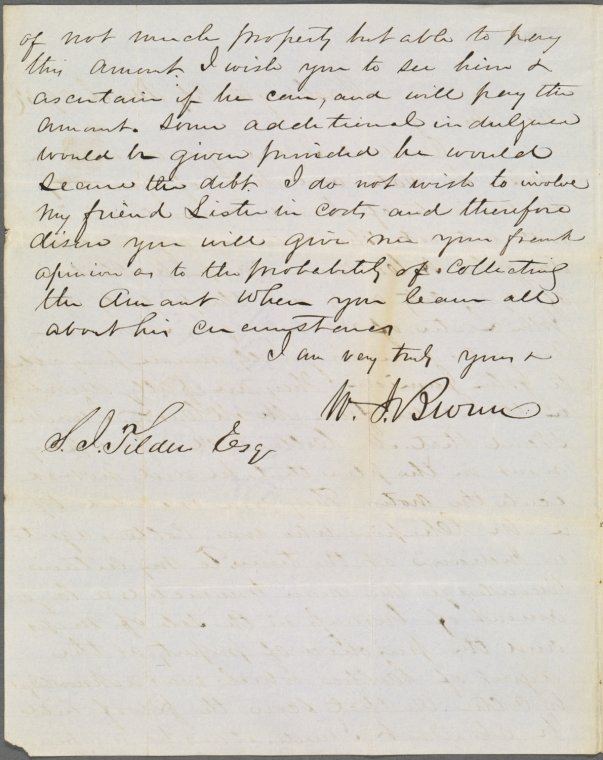 of not much property but able to pay
this amount. I wish you to see him &
ascertain if he can, and will pay the
amount. Some additional indulgence
would be given provided he would
secure the debt. I do not wish to involve
my friend Lister in costs and therefore
desire you will give me your frank
opinion as to the probability of collecting
the amount when you learn all
about his circumstances
I am very truly yours &
W. J. Brown
S. J. Tilden Esq